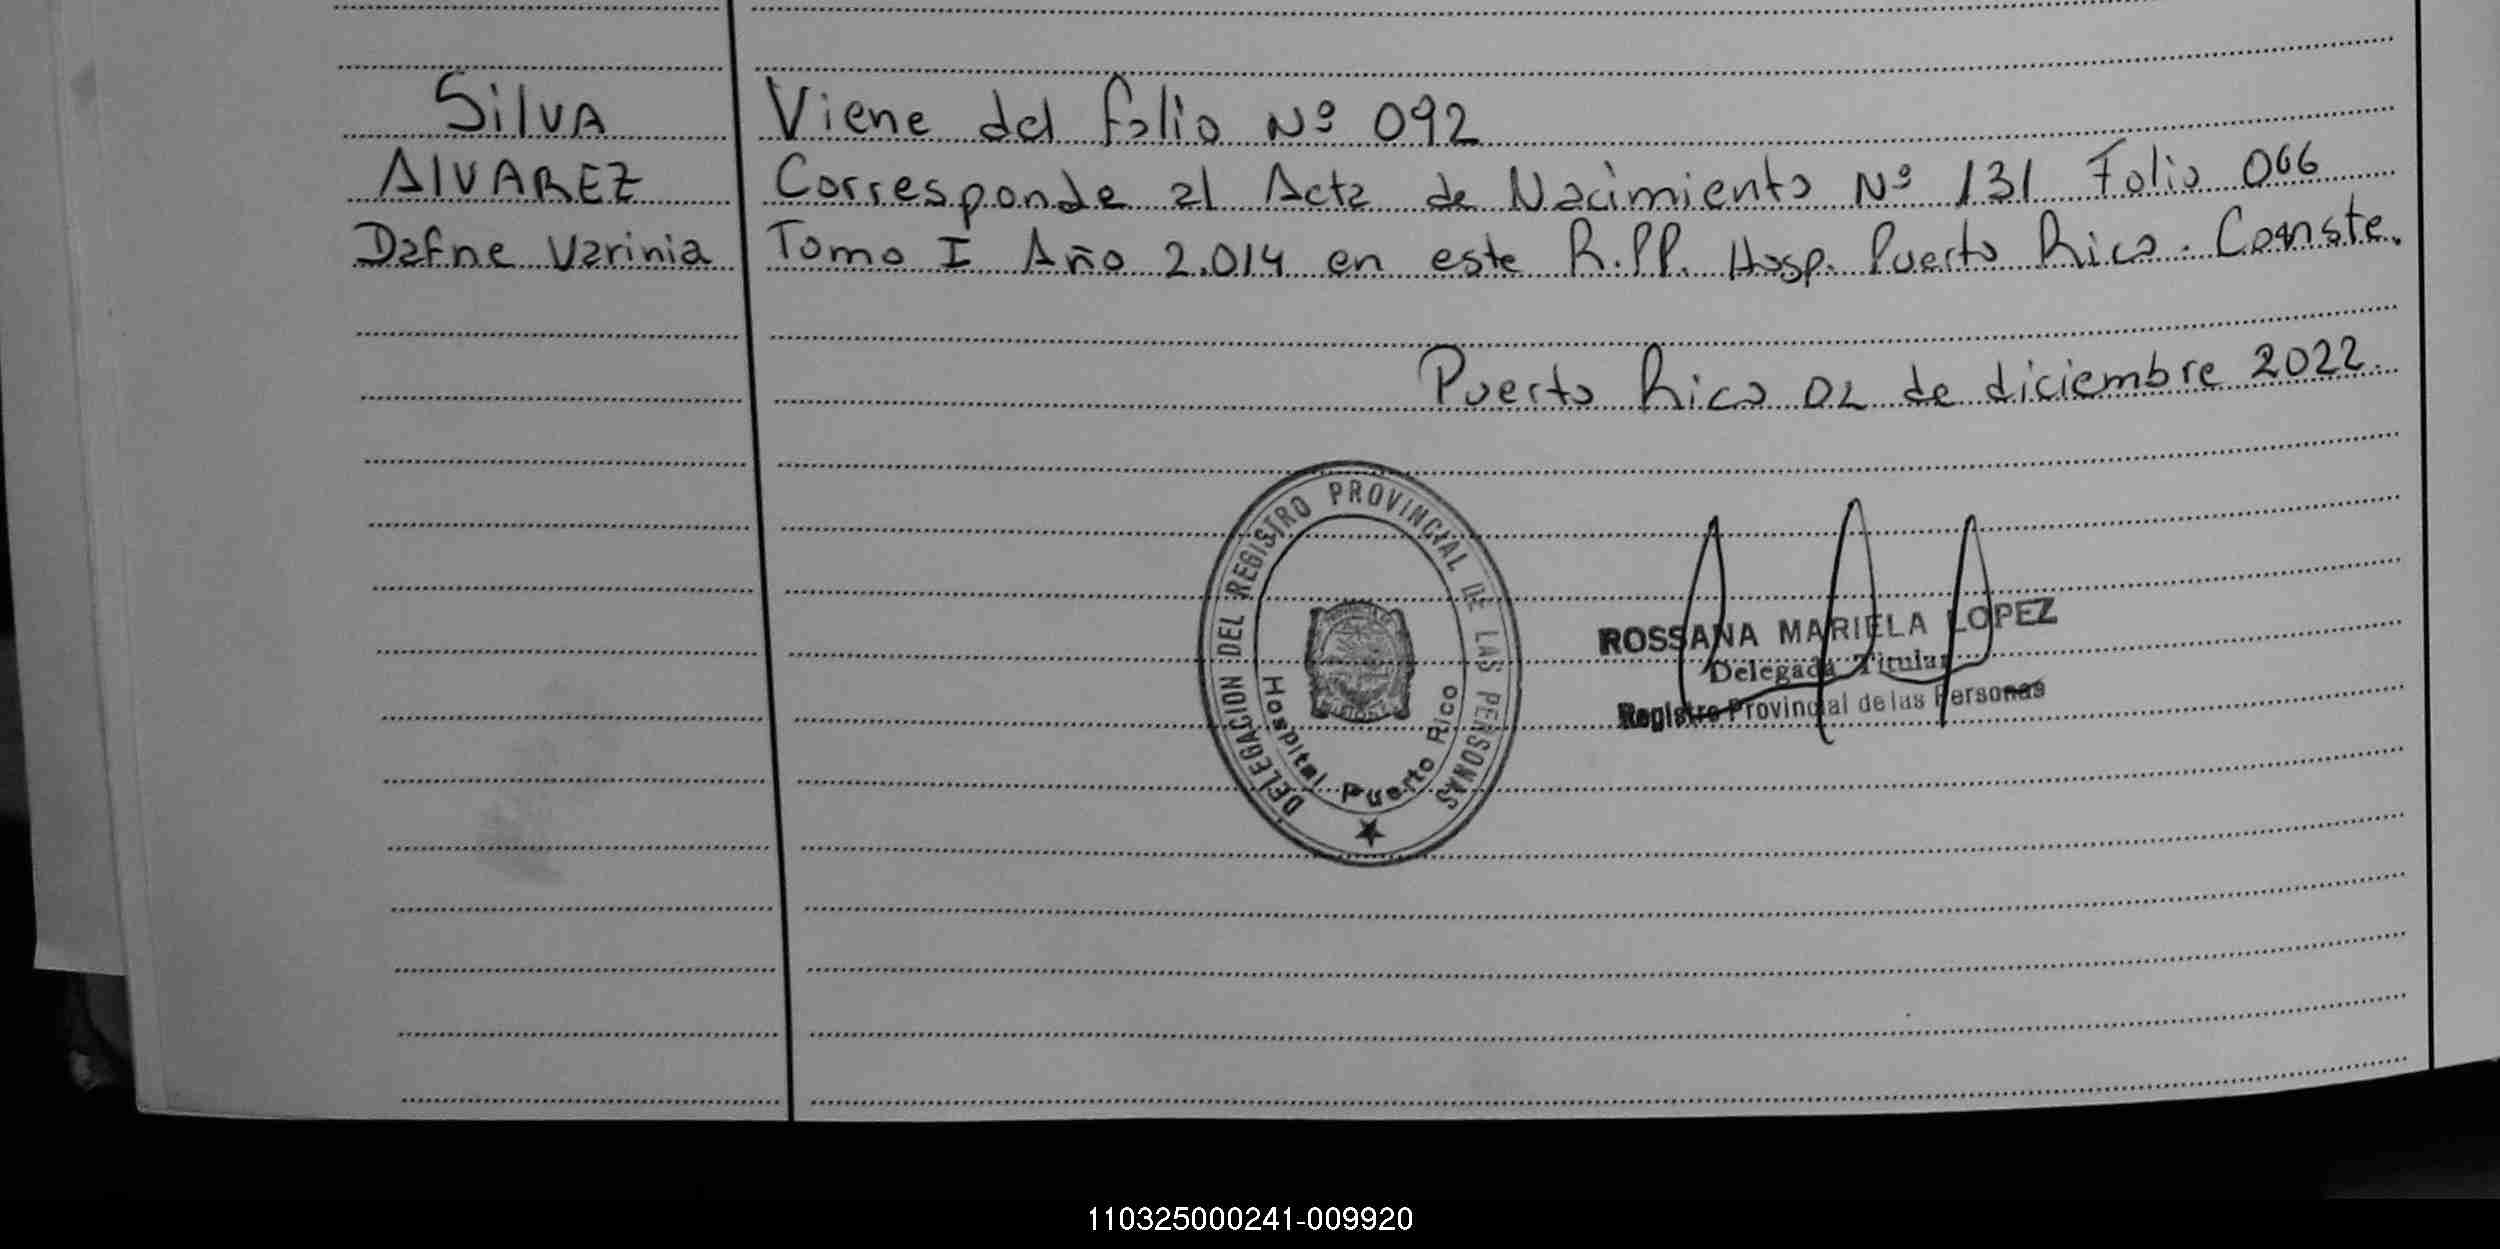 Silva
ALVAREZ
Dafne Varinia
Viene del folio Nº 092
Corresponde al Acta de Nacimiento Nº 131 Folio 066
Tomo I Año 2.014 en este R.PP. Hosp. Puerto Rico. Conste.
Puerto Rico 02 de diciembre 2022.
DELEGACION DEL REGISTRO PROVINCIAL DE LAS PERSONAS
Hospital Puerto Rico
ROSSANA MARIELA LOPEZ
Delegada Titular
Registro Provincial de las Personas
110325000241-009920